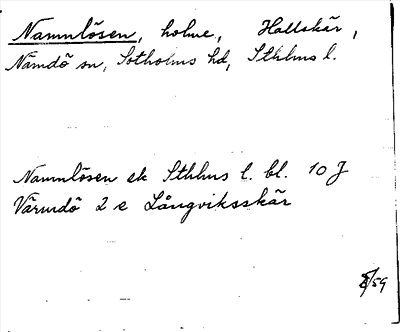 Namnlösen, holme, Hallskär,
Nämdö sn, Sotholms hd, Sthlms l.
Namnlösen ek Sthlms l. bl. 10 J
Värmdö 2 e Långviksskär
/59